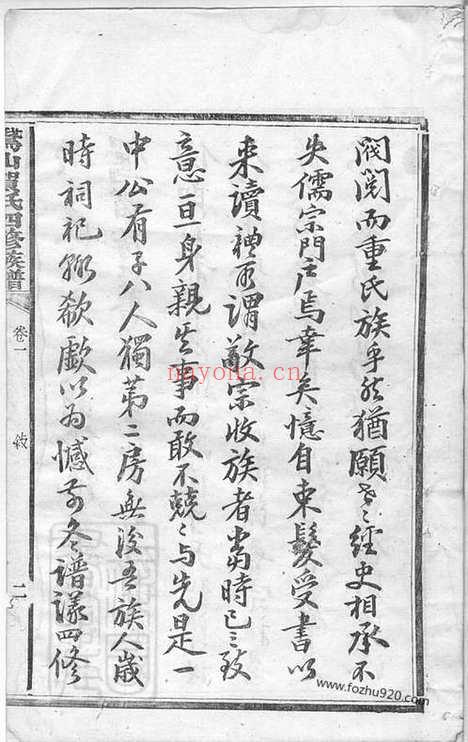 閥閱而重氏族乎然猶願世經史相承不
失儒宗門戶焉幸矣憶自束髮受書以
來讀禮所謂敬宗收族者爾時已三致
意一旦身親其事而敢不兢兢與先是一
中公有子八人獨第二房無後吾族人歲
時祠祀輒欷歔以為憾前冬譜議四修
氏四修族譜
卷一
二
nayona.cn
www.fozhu920.com